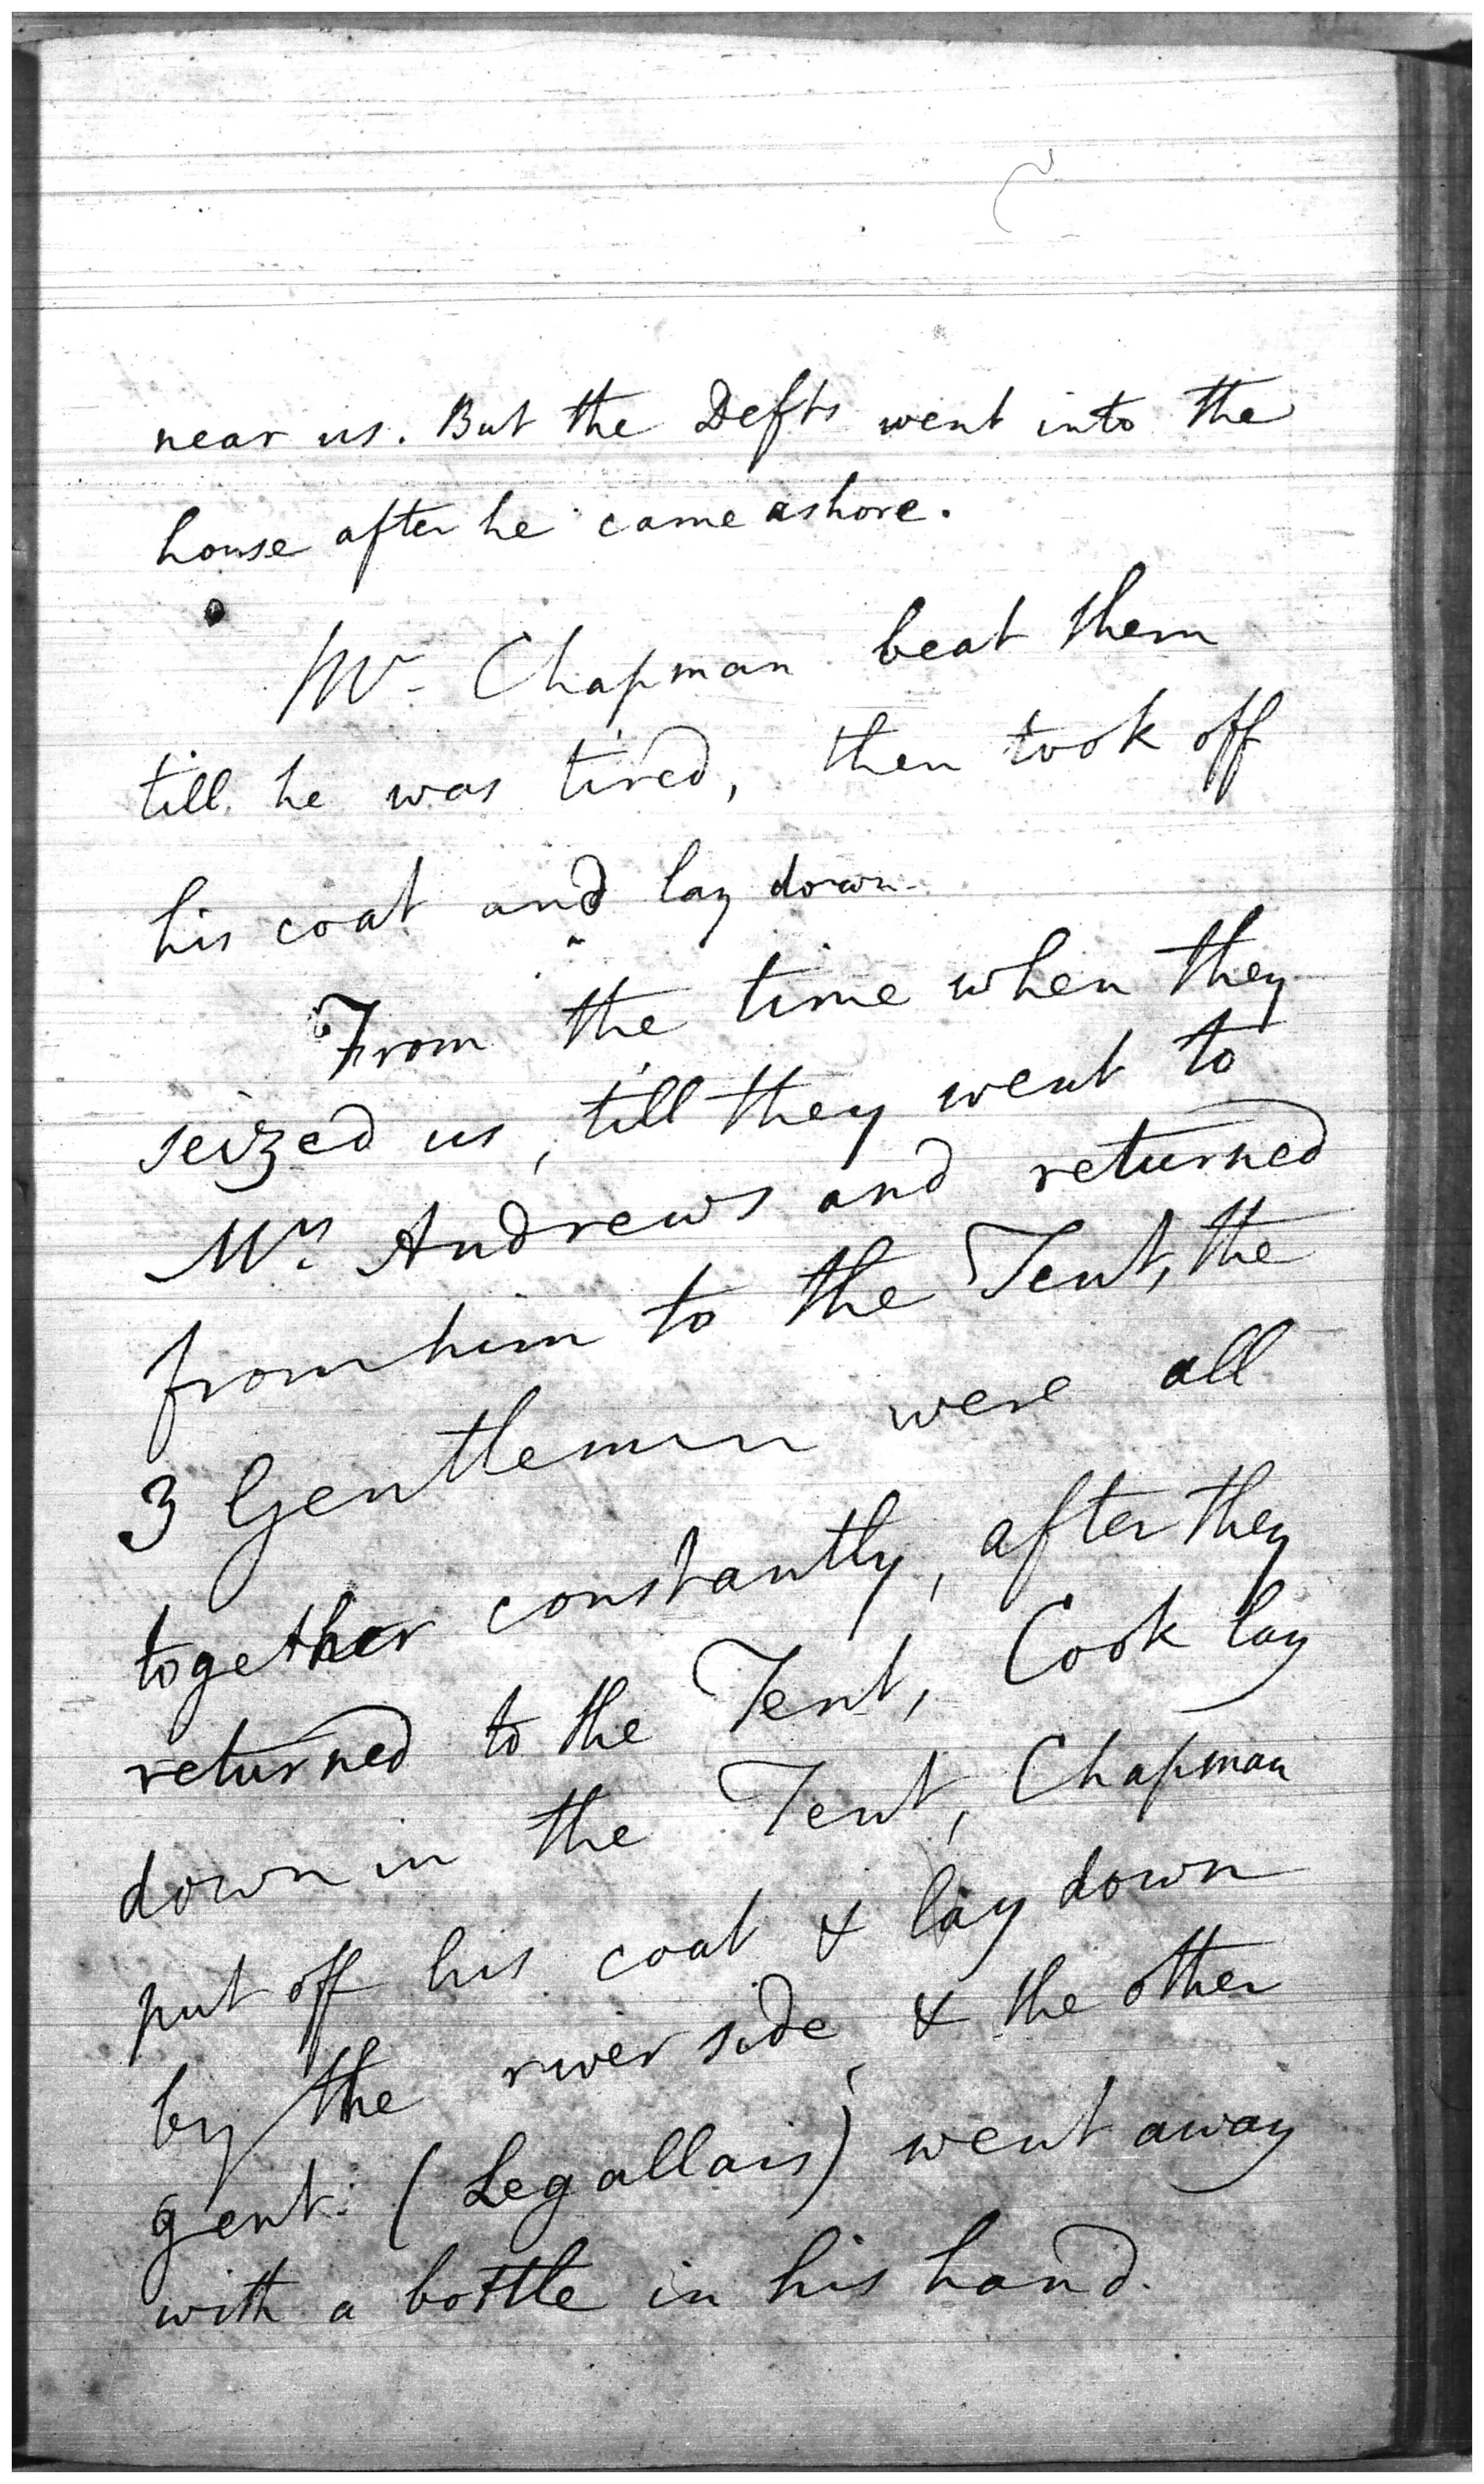 near us. But the Defts went into the
house after he came ashore.
Mr. Chapman beat them
till he was tired, then took off
his coat and lay down.
From the time when they
seized us, till they went to
Mrs. Andrews and returned
from him to the Tent, the
3 Gentlemen were all
together constantly, after they
returned to the Tent, Cook lay
down in the Tent, Chapman
put off his coat & lay down
by the river side, & the other
gent. (Legallais) went away
with a bottle in his hand.